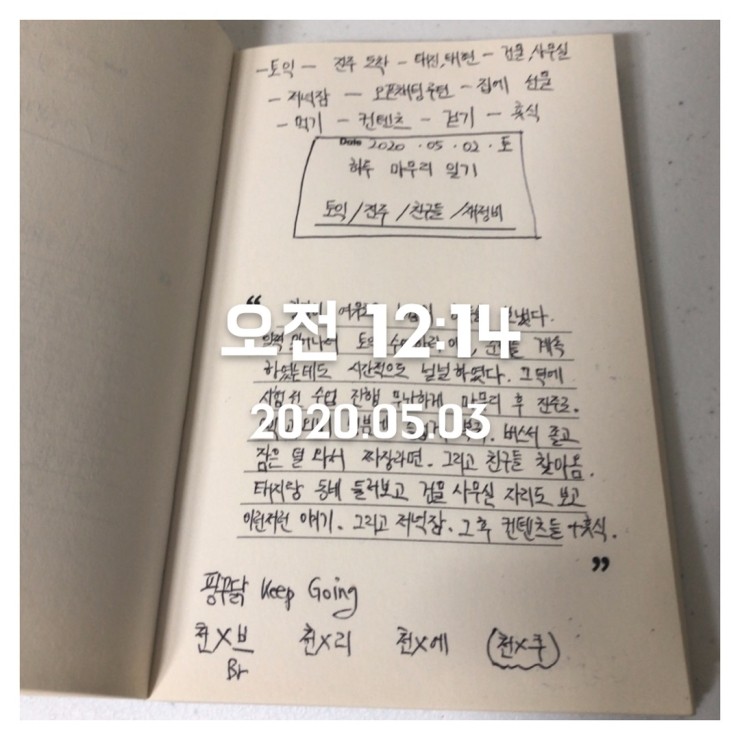 -토익 - 진주 도착 - 태진, 태현 - 건물, 사무실
- 저녁잠 - 오픈채팅 루틴 - 집에 선물
- 먹기 - 컨텐츠 - 걷기 - 휴식
Date 2020 . 05 . 02 . 토
하루 마무리 일기
토익 / 진주 / 친구들 / 재정비
“
여유
오전 12:14
일어나서 토익 수업 계속
하였는데도 시간적으로 널널하였다. 그 덕에
시험 전 수업 진행 무난하게 마무리 후 진주로.
2020.05.03
버스서 졸고
잠은 덜 와서 짜장라면. 그리고 친구들 찾아옴.
태지랑 동네 둘러보고 건물 사무실 자리도 보고
이런저런 얘기. 그리고 저녁잠. 그 후 컨텐츠들 + 휴식.
”
핑꾸닭 Keep Going
천X브 천X리 천X에 (천X쿠)
Br